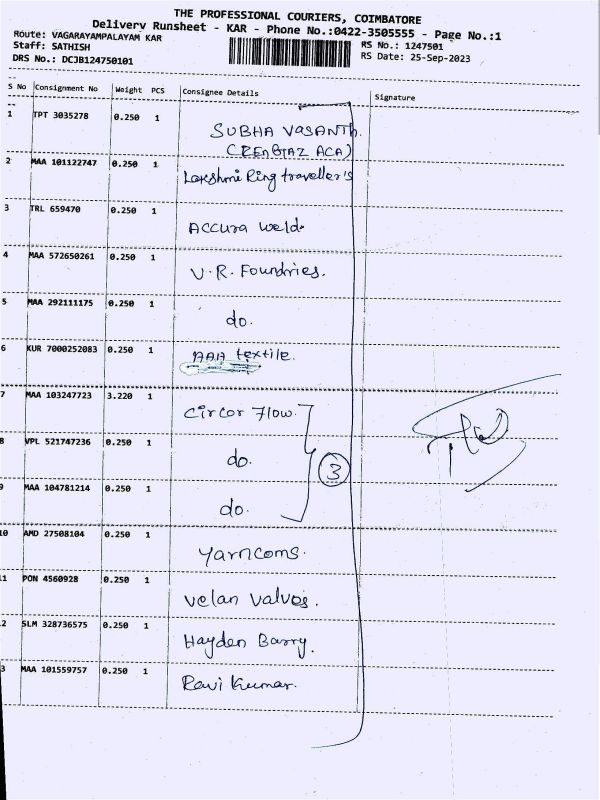 THE PROFESSIONAL COURIERS, COIMBATORE
Delivery Runsheet - KAR - Phone No.:0422-3505555 - Page No.:1
Route: VAGARAYAMPALAYAM KAR
Staff: SATHISH
RS No.: 1247501
DRS No.: DCJB124750101
RS Date: 25-Sep-2023
S No Consignment No Weight PCS Consignee Details Signature
1 TPT 3035278 0.250 1 SUBHA VASANTH.
2 MAA 101122747 0.250 1 Lakshmi Ring traveller's
3 TRL 659470 0.250 1 Accura weld.
4 MAA 572650261 0.250 1 V.R. Foundries.
5 MAA 292111175 0.250 1 do.
6 KUR 7000252083 0.250 1 AAA textile.
7 MAA 103247723 3.220 1 Circor Flow.
8 VPL 521747236 0.250 1 do. 3
9 MAA 104781214 0.250 1 do.
10 AMD 27508104 0.250 1 Yarncoms.
11 PON 4560928 0.250 1 Velan Valves.
2 SLM 328736575 0.250 1 Hayden Barry.
3 MAA 101559757 0.250 1 Ravi Kumar.